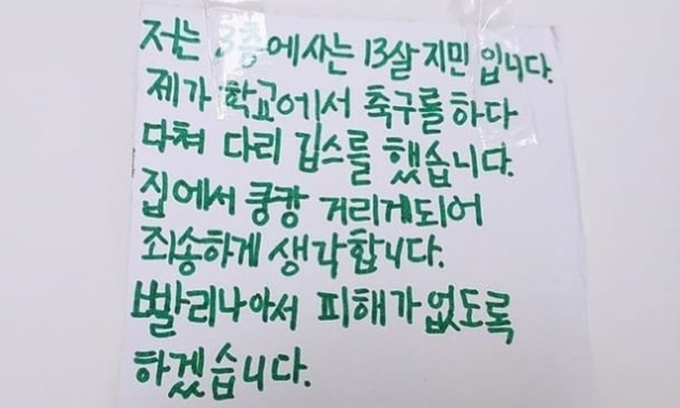 저는 3층에사는 13살 지민 입니다.
제가 학교에서 축구를 하다
다쳐 다리 깁스를 했습니다.
집에서 쿵캉 거리게되어
죄송하게 생각합니다.
빨리나아서 피해가없도록
하겠습니다.